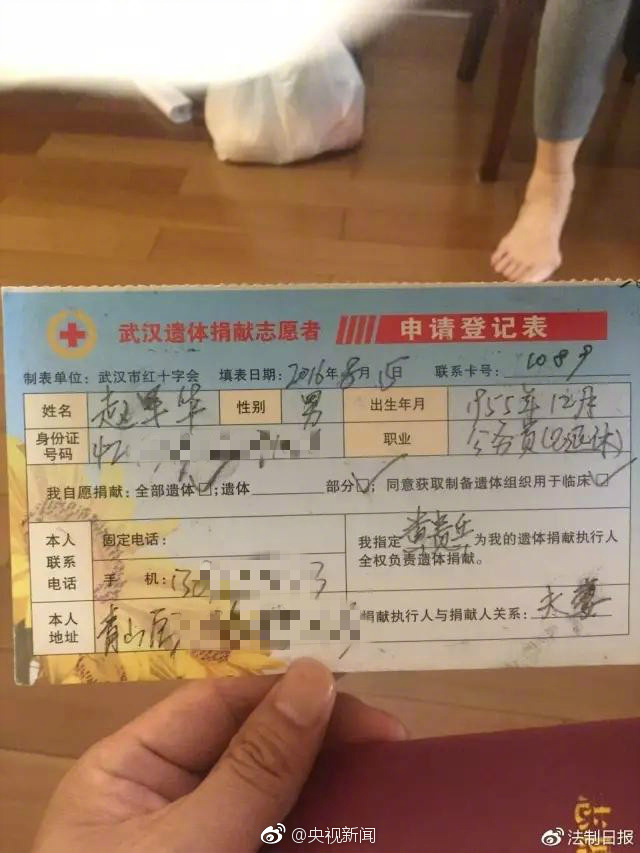 武汉遗体捐献志愿者 申请登记表
制表单位：武汉市红十字会 填表日期：2016年8月15日 联系卡号：1089
姓名 赵军华 性别 男 出生年月 1955年12月
身份证号码 42 职业 公务员(已退休)
我自愿捐献：全部遗体☑；遗体 部分☑；同意获取制备遗体组织用于临床☑
本人联系电话 固定电话： 我指定 为我的遗体捐献执行人
手 机：130 3 全权负责遗体捐献。
本人地址 青山区 捐献执行人与捐献人关系：夫妻
@央视新闻
法制日报